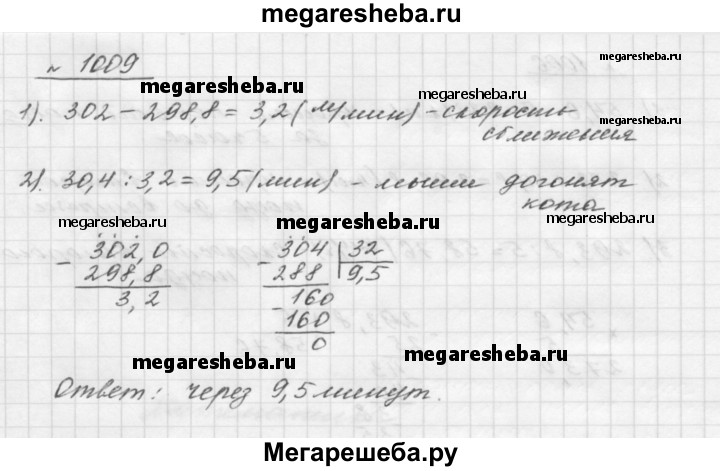 megaresheba.ru
№ 1009
megaresheba.ru
megaresheba.ru
megaresheba.ru
1). 302 - 298,8 = 3,2 (м/мин) - скорость
сближения
2). 30,4 : 3,2 = 9,5 (мин) - мыши догонят
кота
megaresheba.ru
megaresheba.ru
- 302,0
298,8
3,2
- 304 | 32
288 | 9,5
- 160
160
0
megaresheba.ru
megaresheba.ru
Ответ: через 9,5 минут.
Мегарешеба.ру